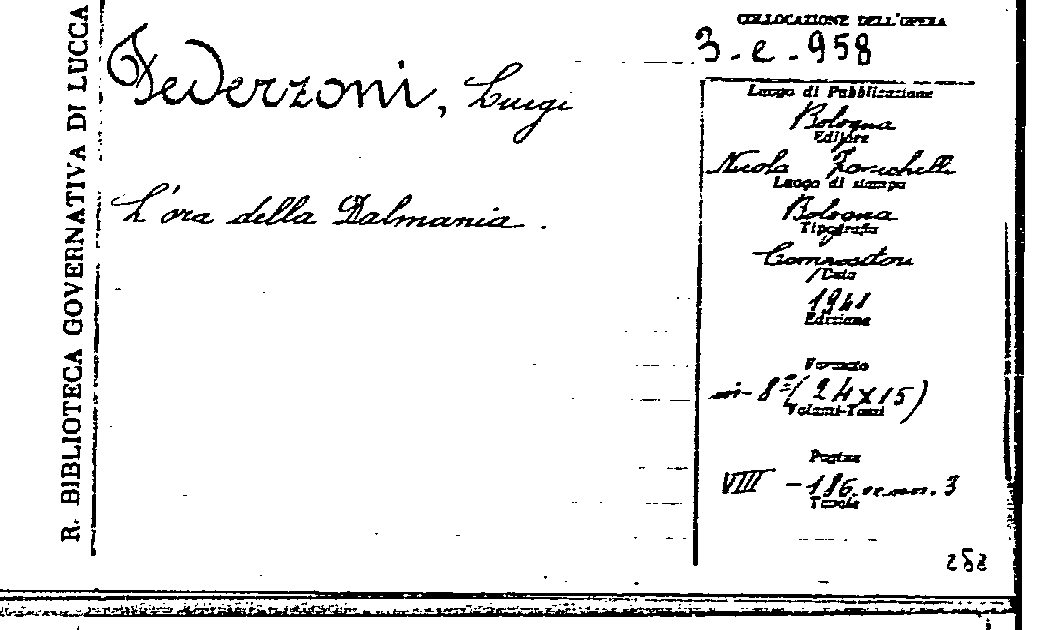 R. BIBLIOTECA GOVERNATIVA DI LUCCA
Federzoni, Luigi
L'ora della Dalmania.
COLLOCAZIONE DELL'OPERA
3-e-958
Luogo di Pubblicazione
Bologna
Editore
Nicola Zanichelli
Luogo di stampa
Bologna
Tipografia
Compositori
Data
1941
Edizione
Formato
in-8°(24x15)
Volumi-Tomi
Pagine
VIII -186 3
Tavole